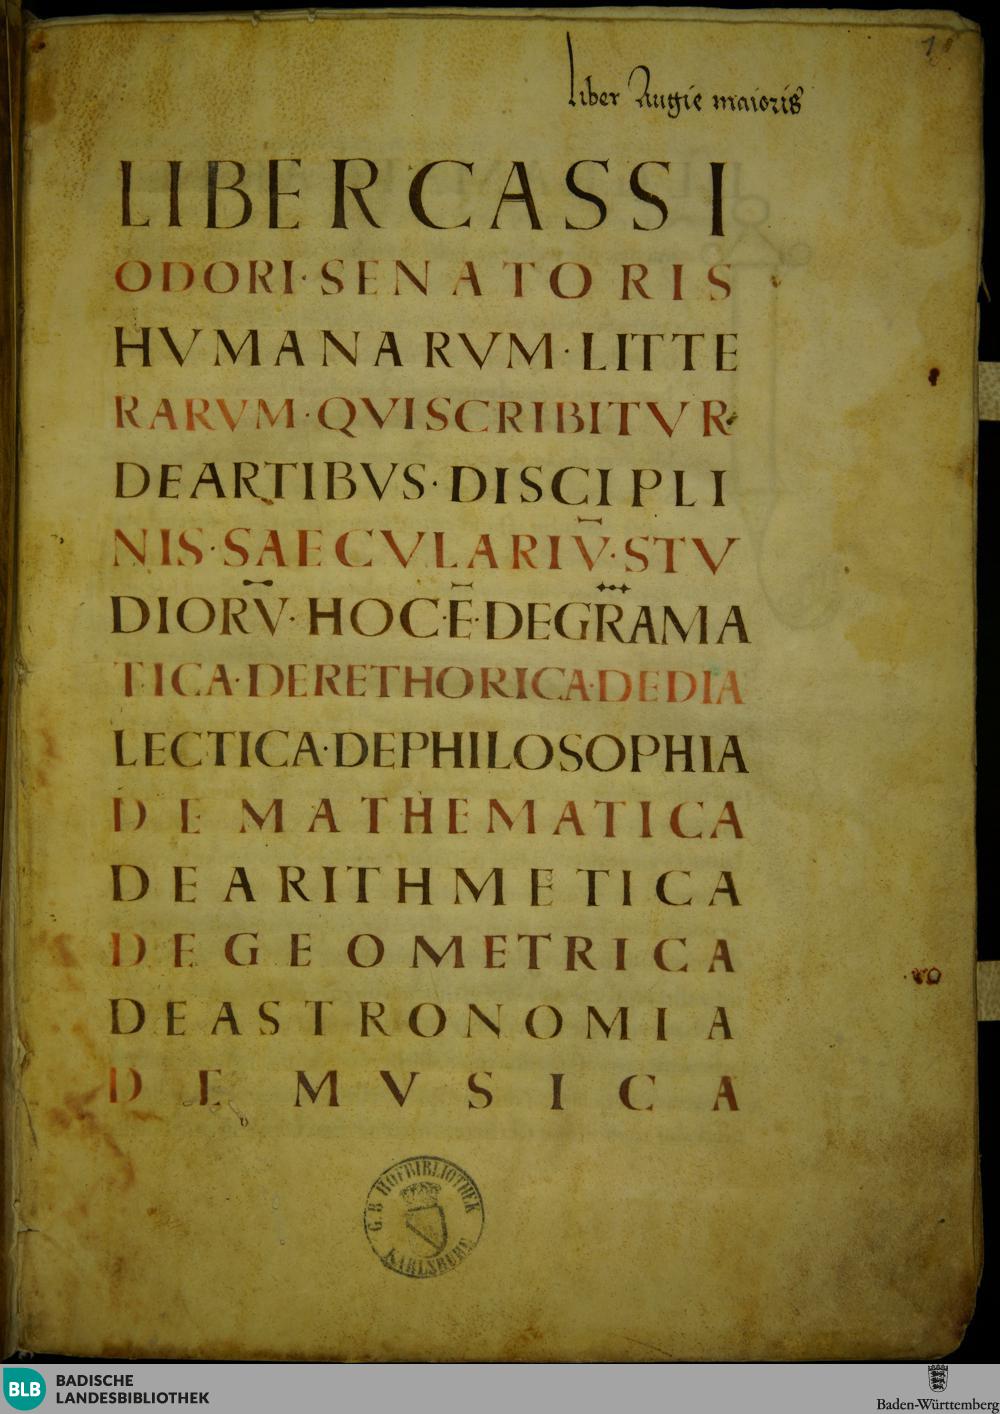 1
Liber Augie maioris
LIBER CASSI
ODORI · SENATORIS
HVMANARVM · LITTE
RARVM · QVI SCRIBITVR
DE ARTIBVS · DISCIPLI
NIS · SAECVLARIV̄ · STV
DIORV̄ · HOC · Ē · DE GRAMA
TICA · DE RETHORICA · DE DIA
LECTICA · DE PHILOSOPHIA
DE MATHEMATICA
DE ARITHMETICA
DE GEOMETRICA
DE ASTRONOMIA
DE MVSICA
G. B. HOFBIBLIOTHEK
KARLSRUHE
BLB BADISCHE
LANDESBIBLIOTHEK
Baden-Württemberg